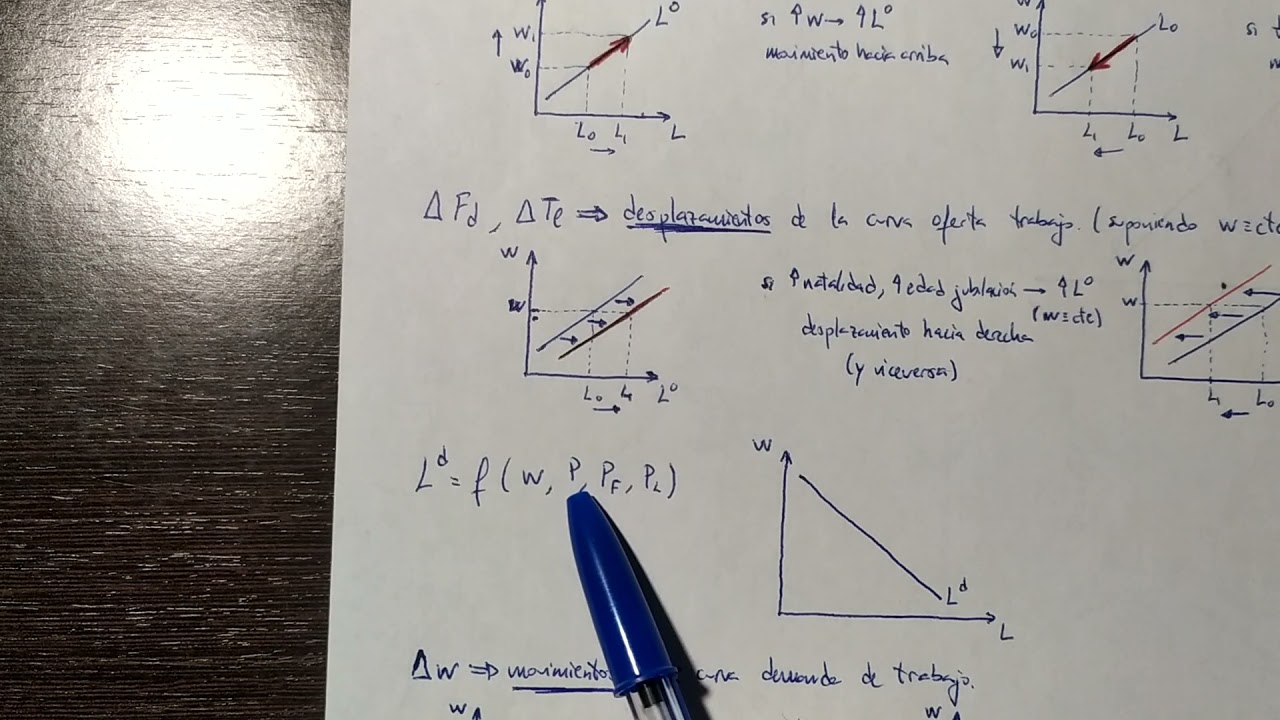 W
L⁰
W₁
W₀
L₀ L₁ L
si ↑w → ↑L⁰
movimiento hacia arriba
W
L₀
W₀
W₁
L₁ L₀ L
si
Δ Fd, ΔTe ⇒ desplazamientos de la curva oferta trabajo. (suponiendo w≡cte
W
w
L₀ L₁ L⁰
si ↑natalidad, ↑edad jubilación → ↑L⁰
(w≡cte)
desplazamiento hacia derecha
(y viceversa)
W
w
L₁ L₀
Lᵈ = f (w, P, P_F, P_L)
W
Lᵈ
L
Δw ⇒ movimientos curva demanda de trabajo.
W
W